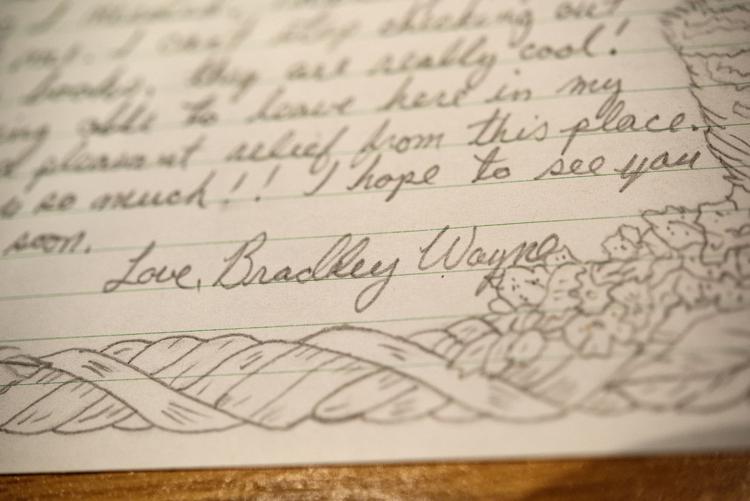 I
out. I can't stop checking out
books. they are really cool!
being able to leave here in my
pleasant relief from this place.
so much!! I hope to see you
soon.
Love, Bradley Wayne